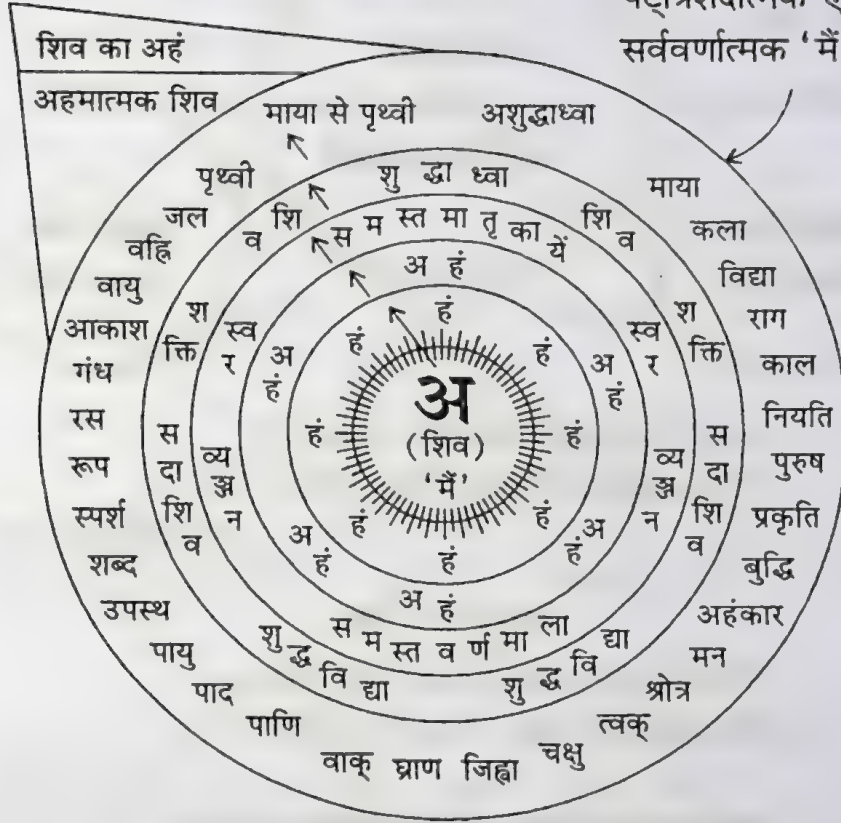 सर्ववर्णात्मक ‘मैं
शिव का अहं
अहमात्मक शिव
माया से पृथ्वी अशुद्धाध्वा
माया
कला
विद्या
राग
काल
नियति
पुरुष
प्रकृति
बुद्धि
अहंकार
मन
श्रोत्र
त्वक्
चक्षु
जिह्वा
घ्राण
वाक्
पाणि
पाद
पायु
उपस्थ
शब्द
स्पर्श
रूप
रस
गंध
आकाश
वायु
वह्नि
जल
पृथ्वी
शुद्धाध्वा
शिव
शक्ति
सदाशिव
शुद्धविद्या
शिव
शक्ति
सदाशिव
शुद्धविद्या
समस्त मातृकायें
स्वर
व्यञ्जन
समस्त वर्णमाला
स्वर
व्यञ्जन
अहं
अहं
अहं
अहं
अहं
अहं
हं
हं
हं
हं
हं
हं
हं
हं
अ
(शिव)
‘मैं’